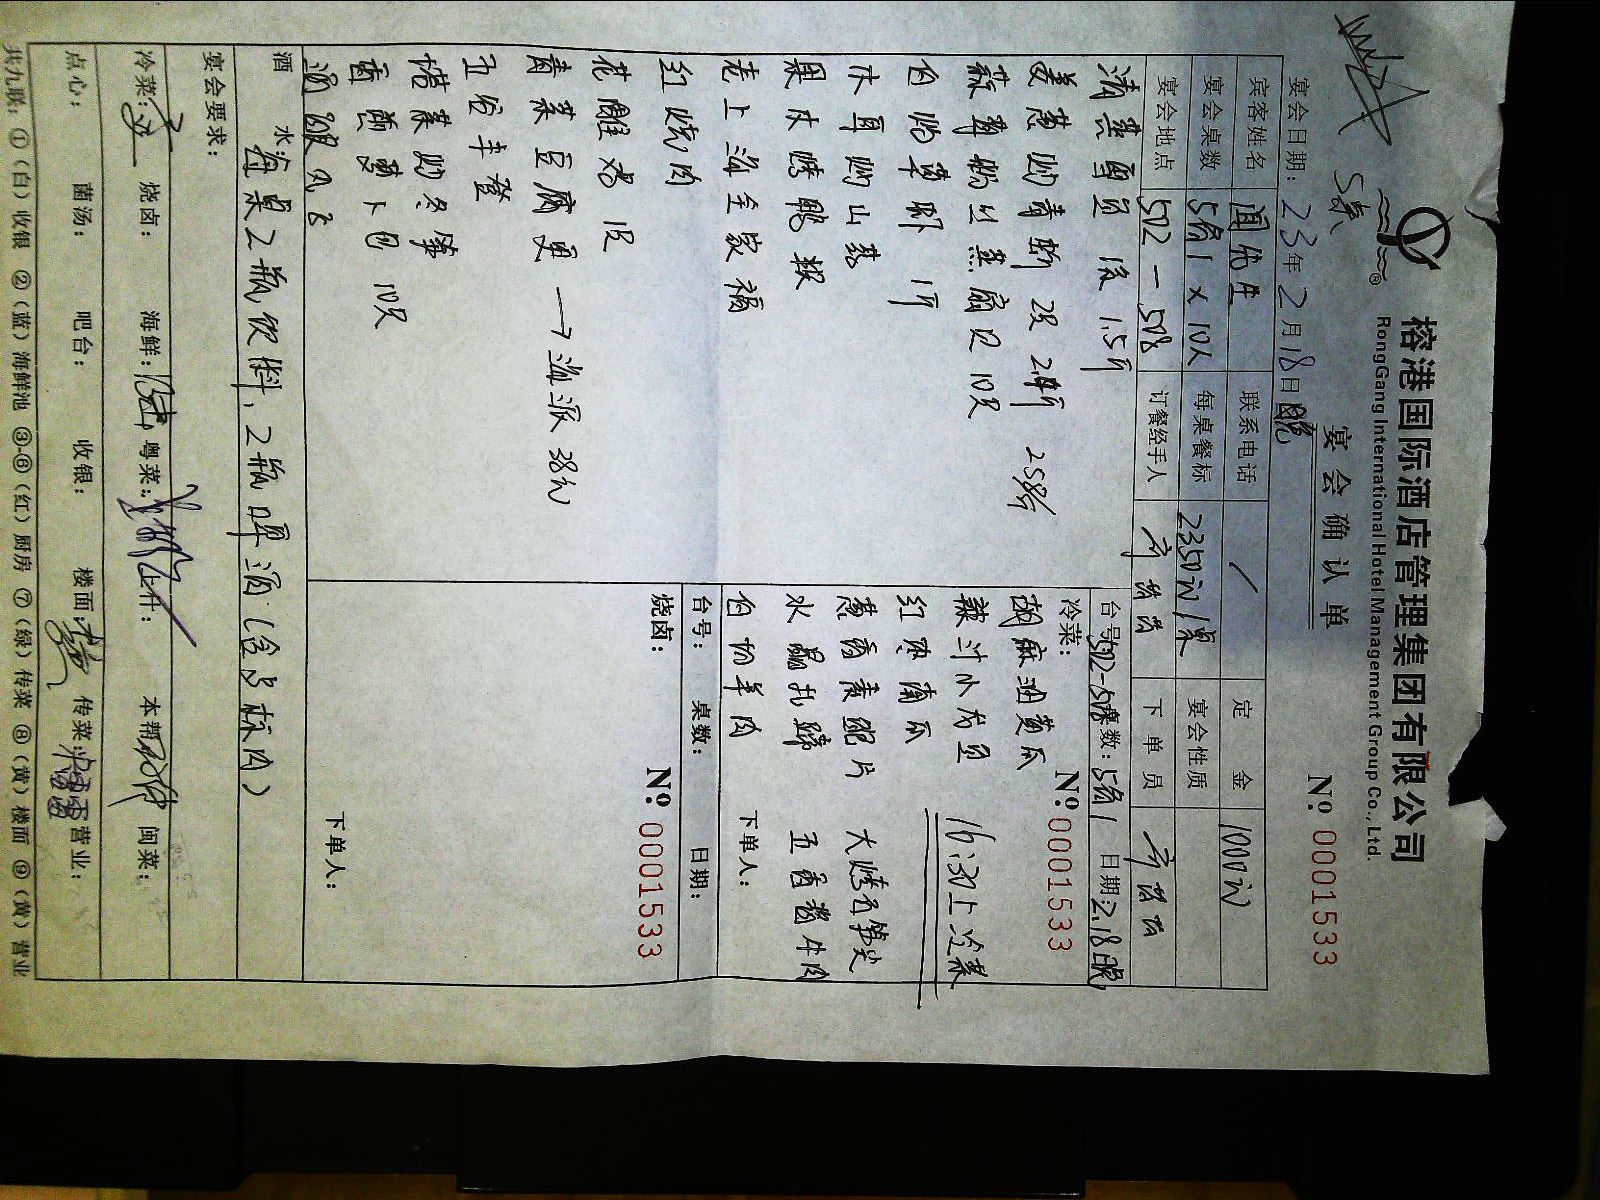 榕港国际酒店管理集团有限公司
RongGang International Hotel Management Group Co., Ltd.
5桌
宴会确认单
№ 0001533
宴会日期：23年2月18日晚
宾客姓名 联系电话 / 定金 1000元
宴会桌数 5桌 × 10人 每桌餐标 2350元/桌 宴会性质
宴会地点 502-508 订餐经手人 下单员
清蒸 1.5斤
姜葱炒青蟹 2只 258/斤
蒜蓉粉丝蒸扇贝 10只
白灼草虾 1斤
木耳炒山药
果木烤鸭
老上海全家福
红烧肉
花雕鸡 1只
青菜豆腐 → 海派 38元
五谷丰登
塔菜炒冬笋
10只
台号：502-508 桌数：5桌 日期：2.18晚
冷菜： №：0001533
麻油黄瓜
红枣南瓜
葱香 大烤 笋尖
水晶 五香酱牛肉
白切羊肉
16:30上冷菜
下单人：
台号： 桌数： 日期：
烧卤： №：0001533
下单人：
酒水：每桌2瓶饮料，2瓶啤酒
宴会要求：
冷菜： 烧卤： 海鲜： 粤菜： 上什： 本帮： 闽菜：
点心： 菌汤： 吧台： 收银： 楼面： 传菜： 营业：
共九联：①（白）收银 ②（蓝）海鲜池 ③-⑥（红）厨房 ⑦（绿）传菜 ⑧（黄）楼面 ⑨（黄）营业